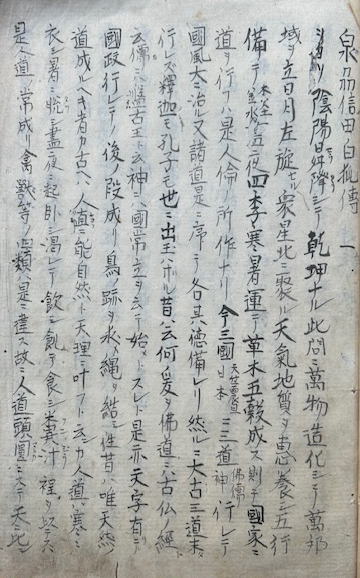 泉州信田白狐傳 一
陰陽昇降シテ乾坤ナル此間ニ萬物造化シテ萬邦
域ヲ立日月左旋セル衆星北ニ聚ル天氣地質ヲ惠養シ五行
備ヘテ五度四季寒暑運テ草木五穀成ス則チ國家ニ
道ヲ行フハ是人倫ノ所作ナリ今三國日本ニ三道神佛儒行レテ
國風大ニ治ル又諸道是ニ序テ各其德備レリ然ルニ大古三道未
行レズ釋迦モ孔子モ世ニ出玉ハネハ昔ハ云何ノ爰ヲ佛道ニハ古仏ノ經
云儒ニハ古王ト云神ニハ國常立ヲ云テ始メトスレド是亦文字有テ
國政行レテノ後ノ段成リ鳥跡ヲ求メ繩ヲ結シ性昔ハ唯天然
道成ルヘキ者カ古ヘハ人能自然ト天理ニ叶フト云カ人道ハ寒ニ
衣シ暑ニ脱シ晝夜ニ起卧シ渴シテ飲シ飢テ食シ
是人道ノ常成リ禽獸等ノ類是ニ違ス故ニ人道頭圓ニシテ天